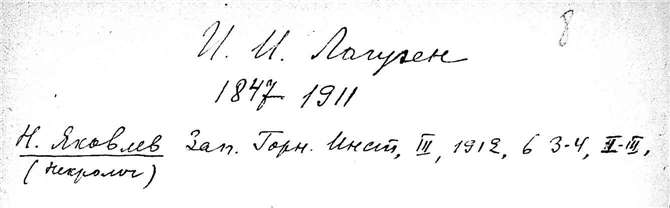 8
И. И. Лагузен
1847 1911
Н. Яковлев Зап. Горн. Инст, III, 1912, 6 3-4, II-III,
(Некролог)